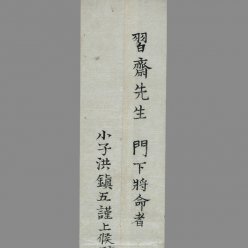 習齋先生 門下將命者
小子洪鎭五謹上候